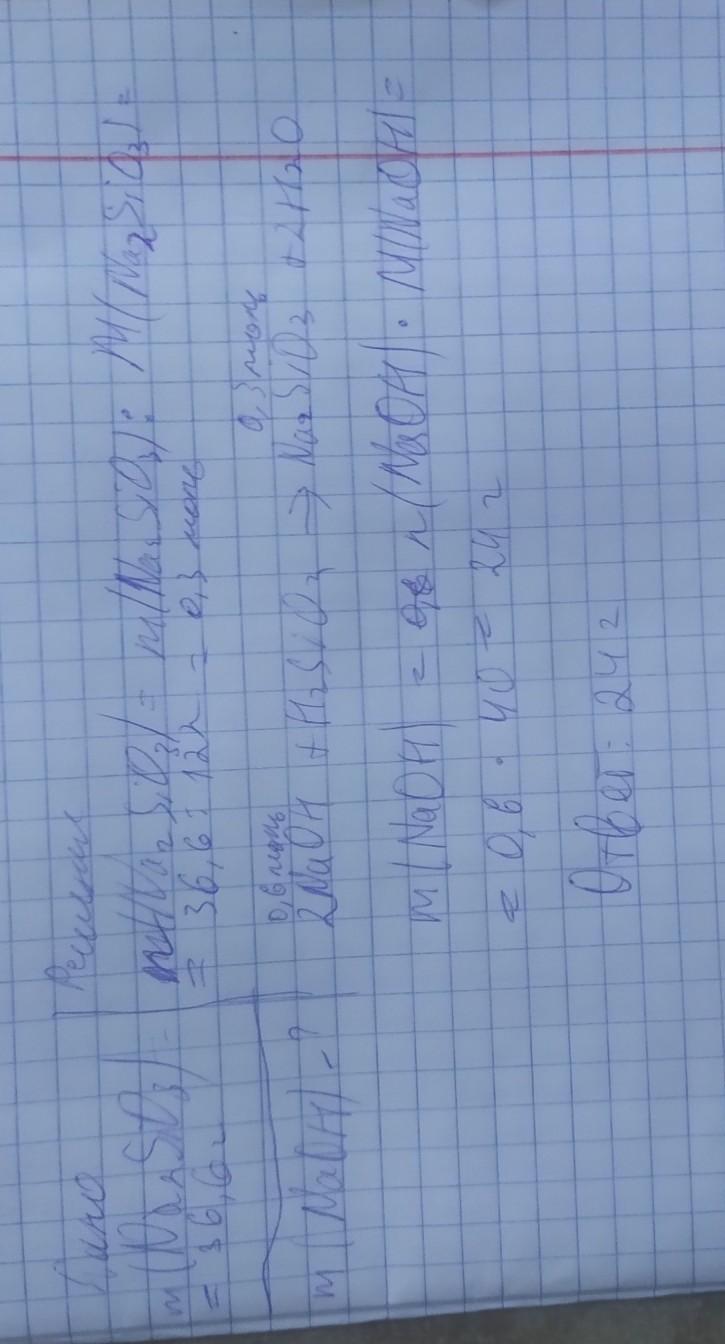 Дано
m(Na₂SiO₃) -
= 36,6 г
m(NaOH) - ?
Решение
n(Na₂SiO₃) = m(Na₂SiO₃) : M(Na₂SiO₃) =
= 36,6 : 122 = 0,3 моль
0,6 моль 0,3 моль
2NaOH + H₂SiO₃ → Na₂SiO₃ + 2H₂O
m(NaOH) = n(NaOH) · M(NaOH) =
= 0,6 · 40 = 24 г
Ответ: 24 г